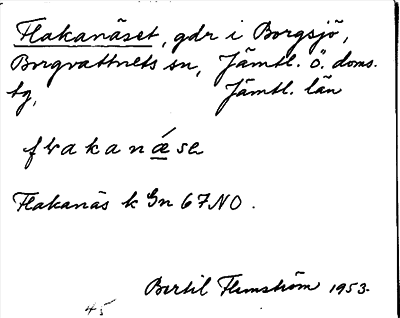 Flakanäset, gdr i Borgsjö,
Borgvattnets sn, Jämtl. ö. doms.
tg, Jämtl. län
flakanǽse
Flakanäs k Gn 67 NO.
Bertil Flemström 1953.
45